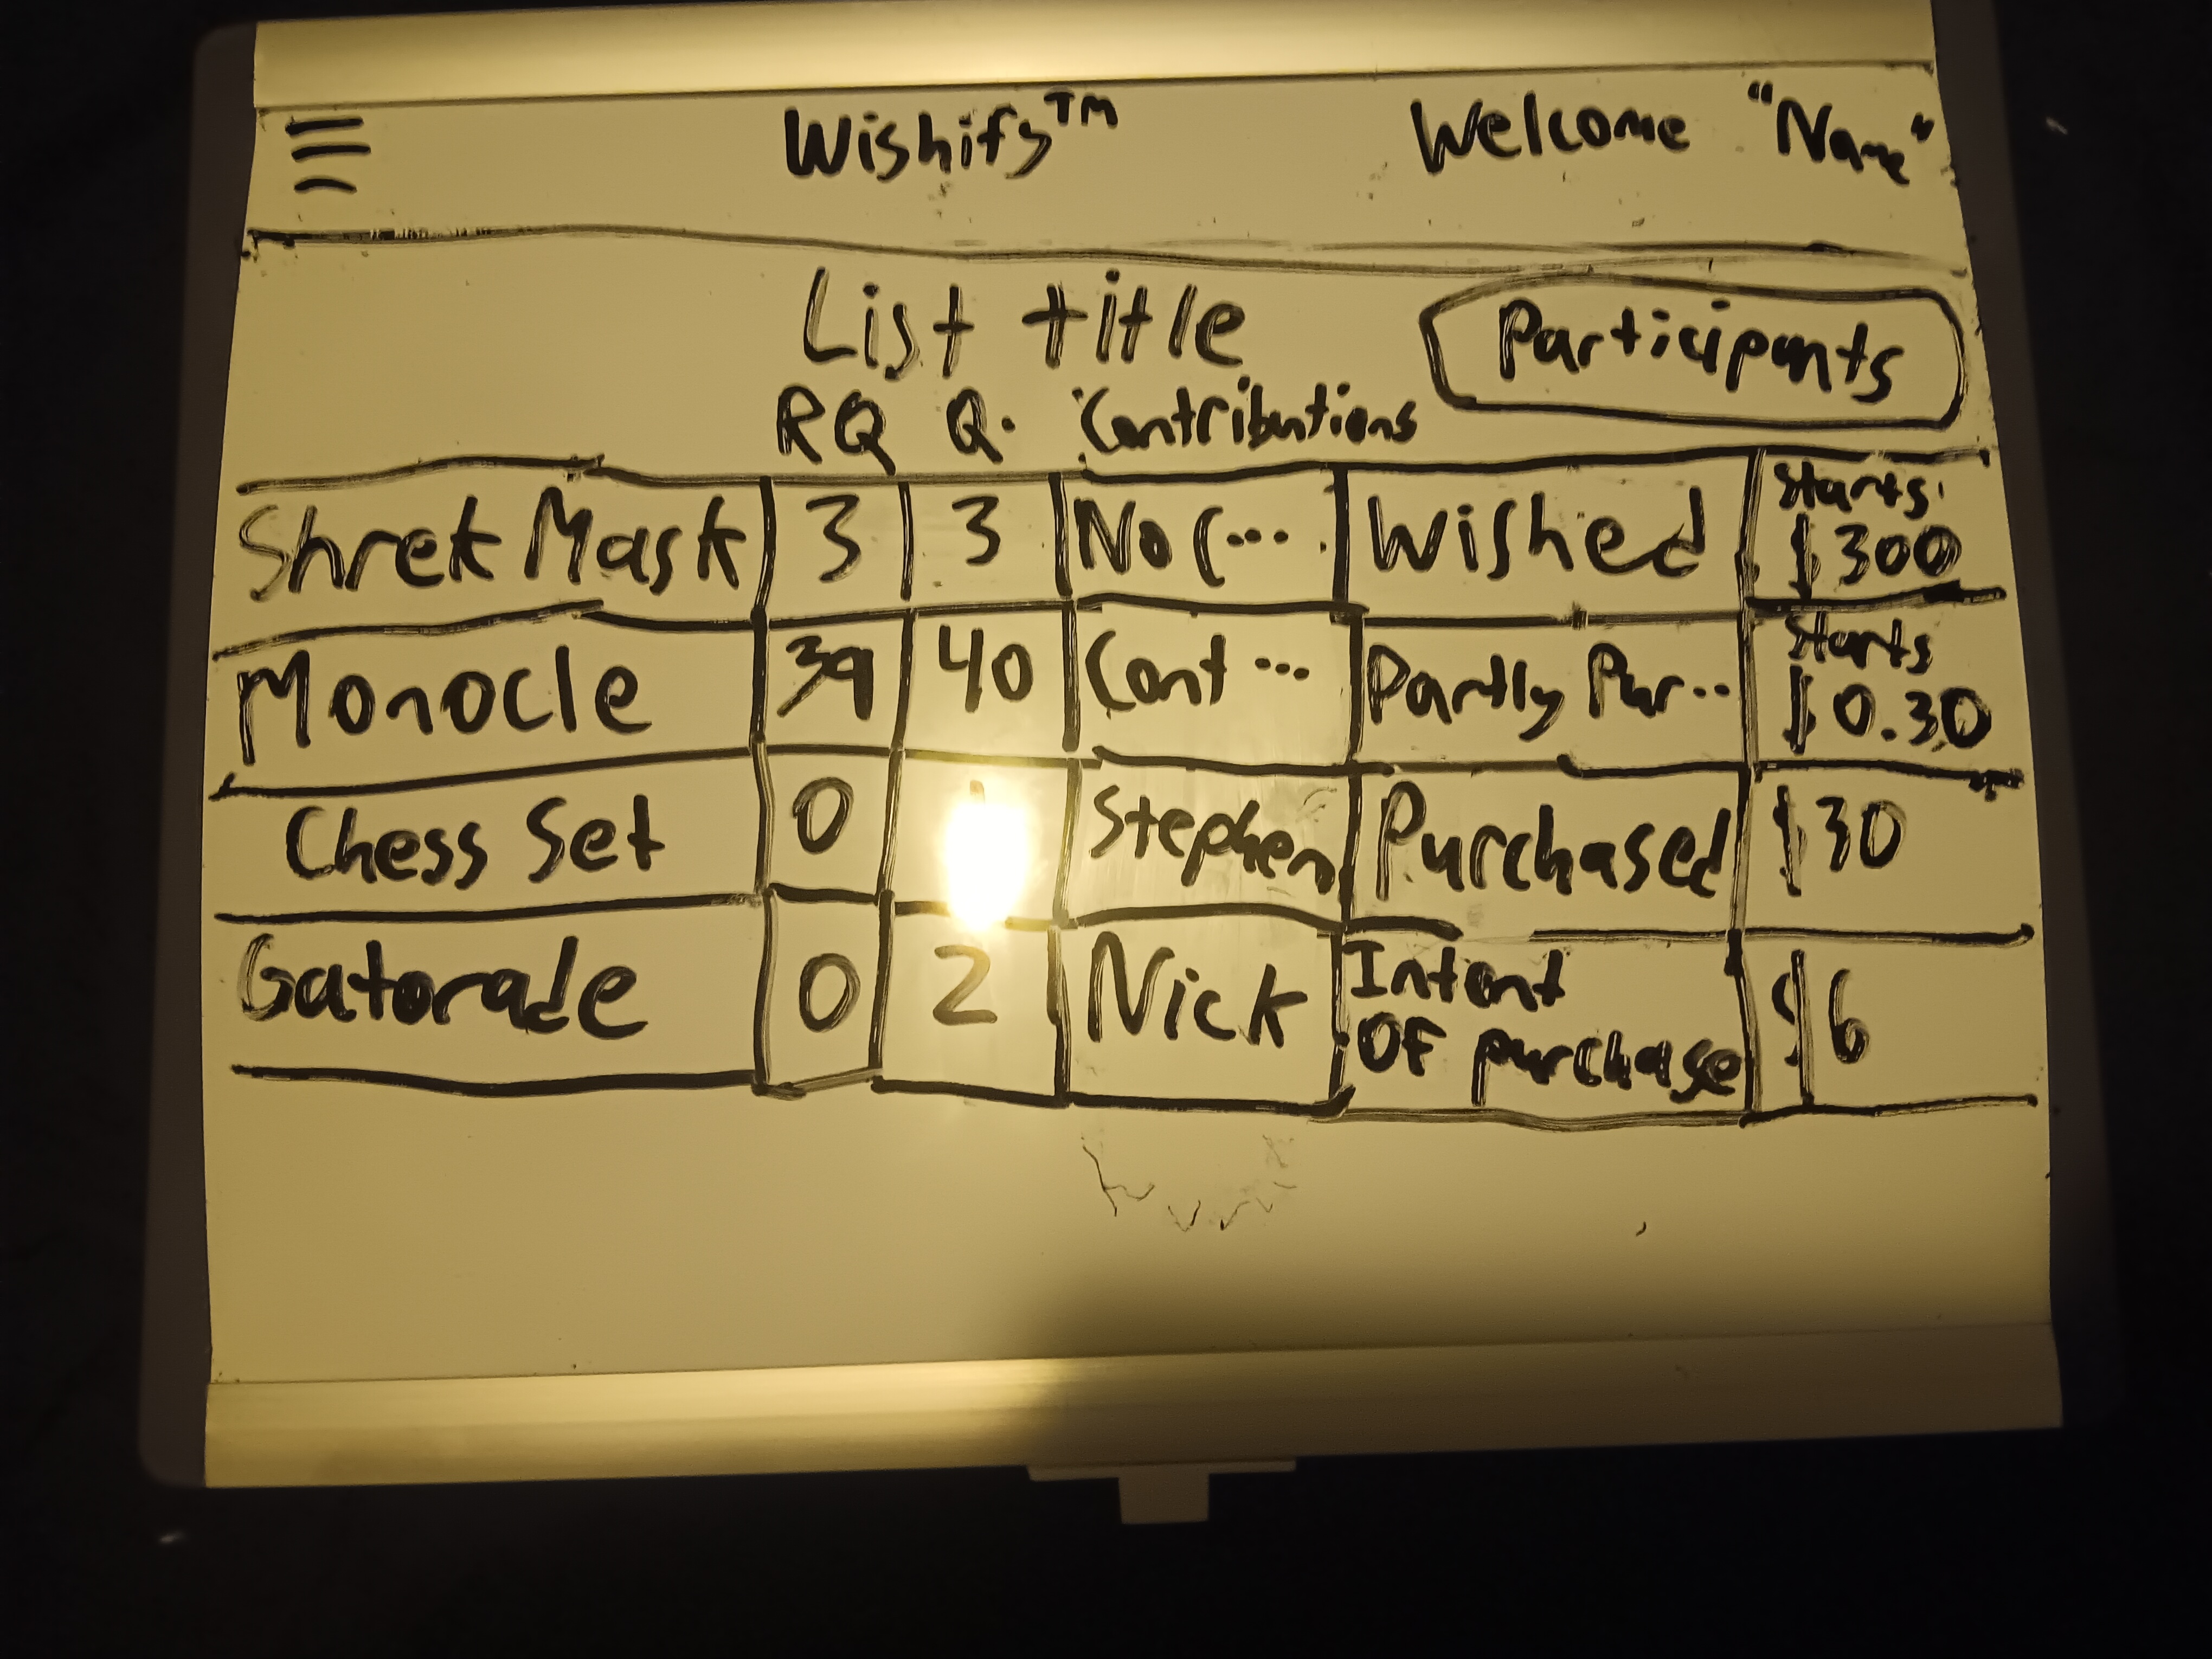 Wishify™ Welcome "Name"
List title Participants
RQ Q. Contributions
Shrek Mask 3 3 No C... Wished Starts $300
Monocle 39 40 Cont... Partly Pur... Starts $0.30
Chess Set 0 Stephen Purchased $30
Gatorade 0 2 Nick Intent OF purchase $6